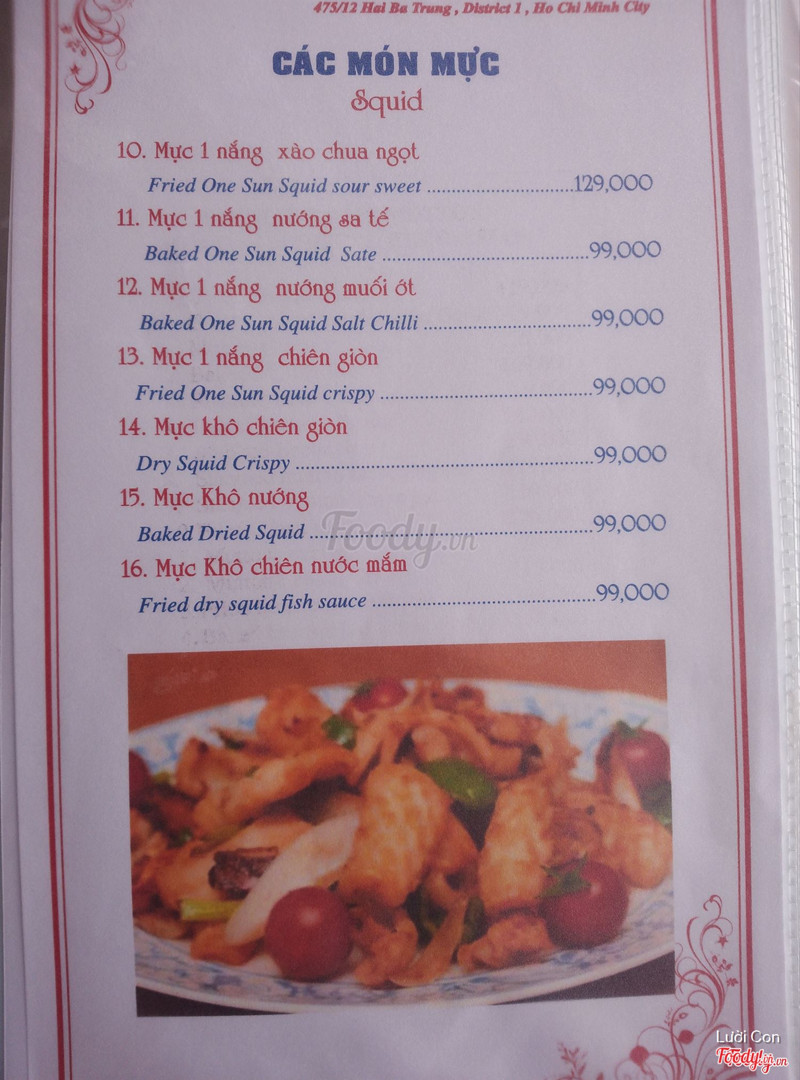 475/12 Hai Ba Trung , District 1 , Ho Chi Minh City
CÁC MÓN MỰC
Squid
10. Mực 1 nắng xào chua ngọt
Fried One Sun Squid sour sweet ............................129,000
11. Mực 1 nắng nướng sa tế
Baked One Sun Squid Sate .......................................99,000
12. Mực 1 nắng nướng muối ớt
Baked One Sun Squid Salt Chilli ................................99,000
13. Mực 1 nắng chiên giòn
Fried One Sun Squid crispy ........................................99,000
14. Mực khô chiên giòn
Dry Squid Crispy .........................................................99,000
15. Mực Khô nướng
Baked Dried Squid ......................................................99,000
16. Mực Khô chiên nước mắm
Fried dry squid fish sauce ...........................................99,000
Foody.vn
Lười Con
Foody.vn